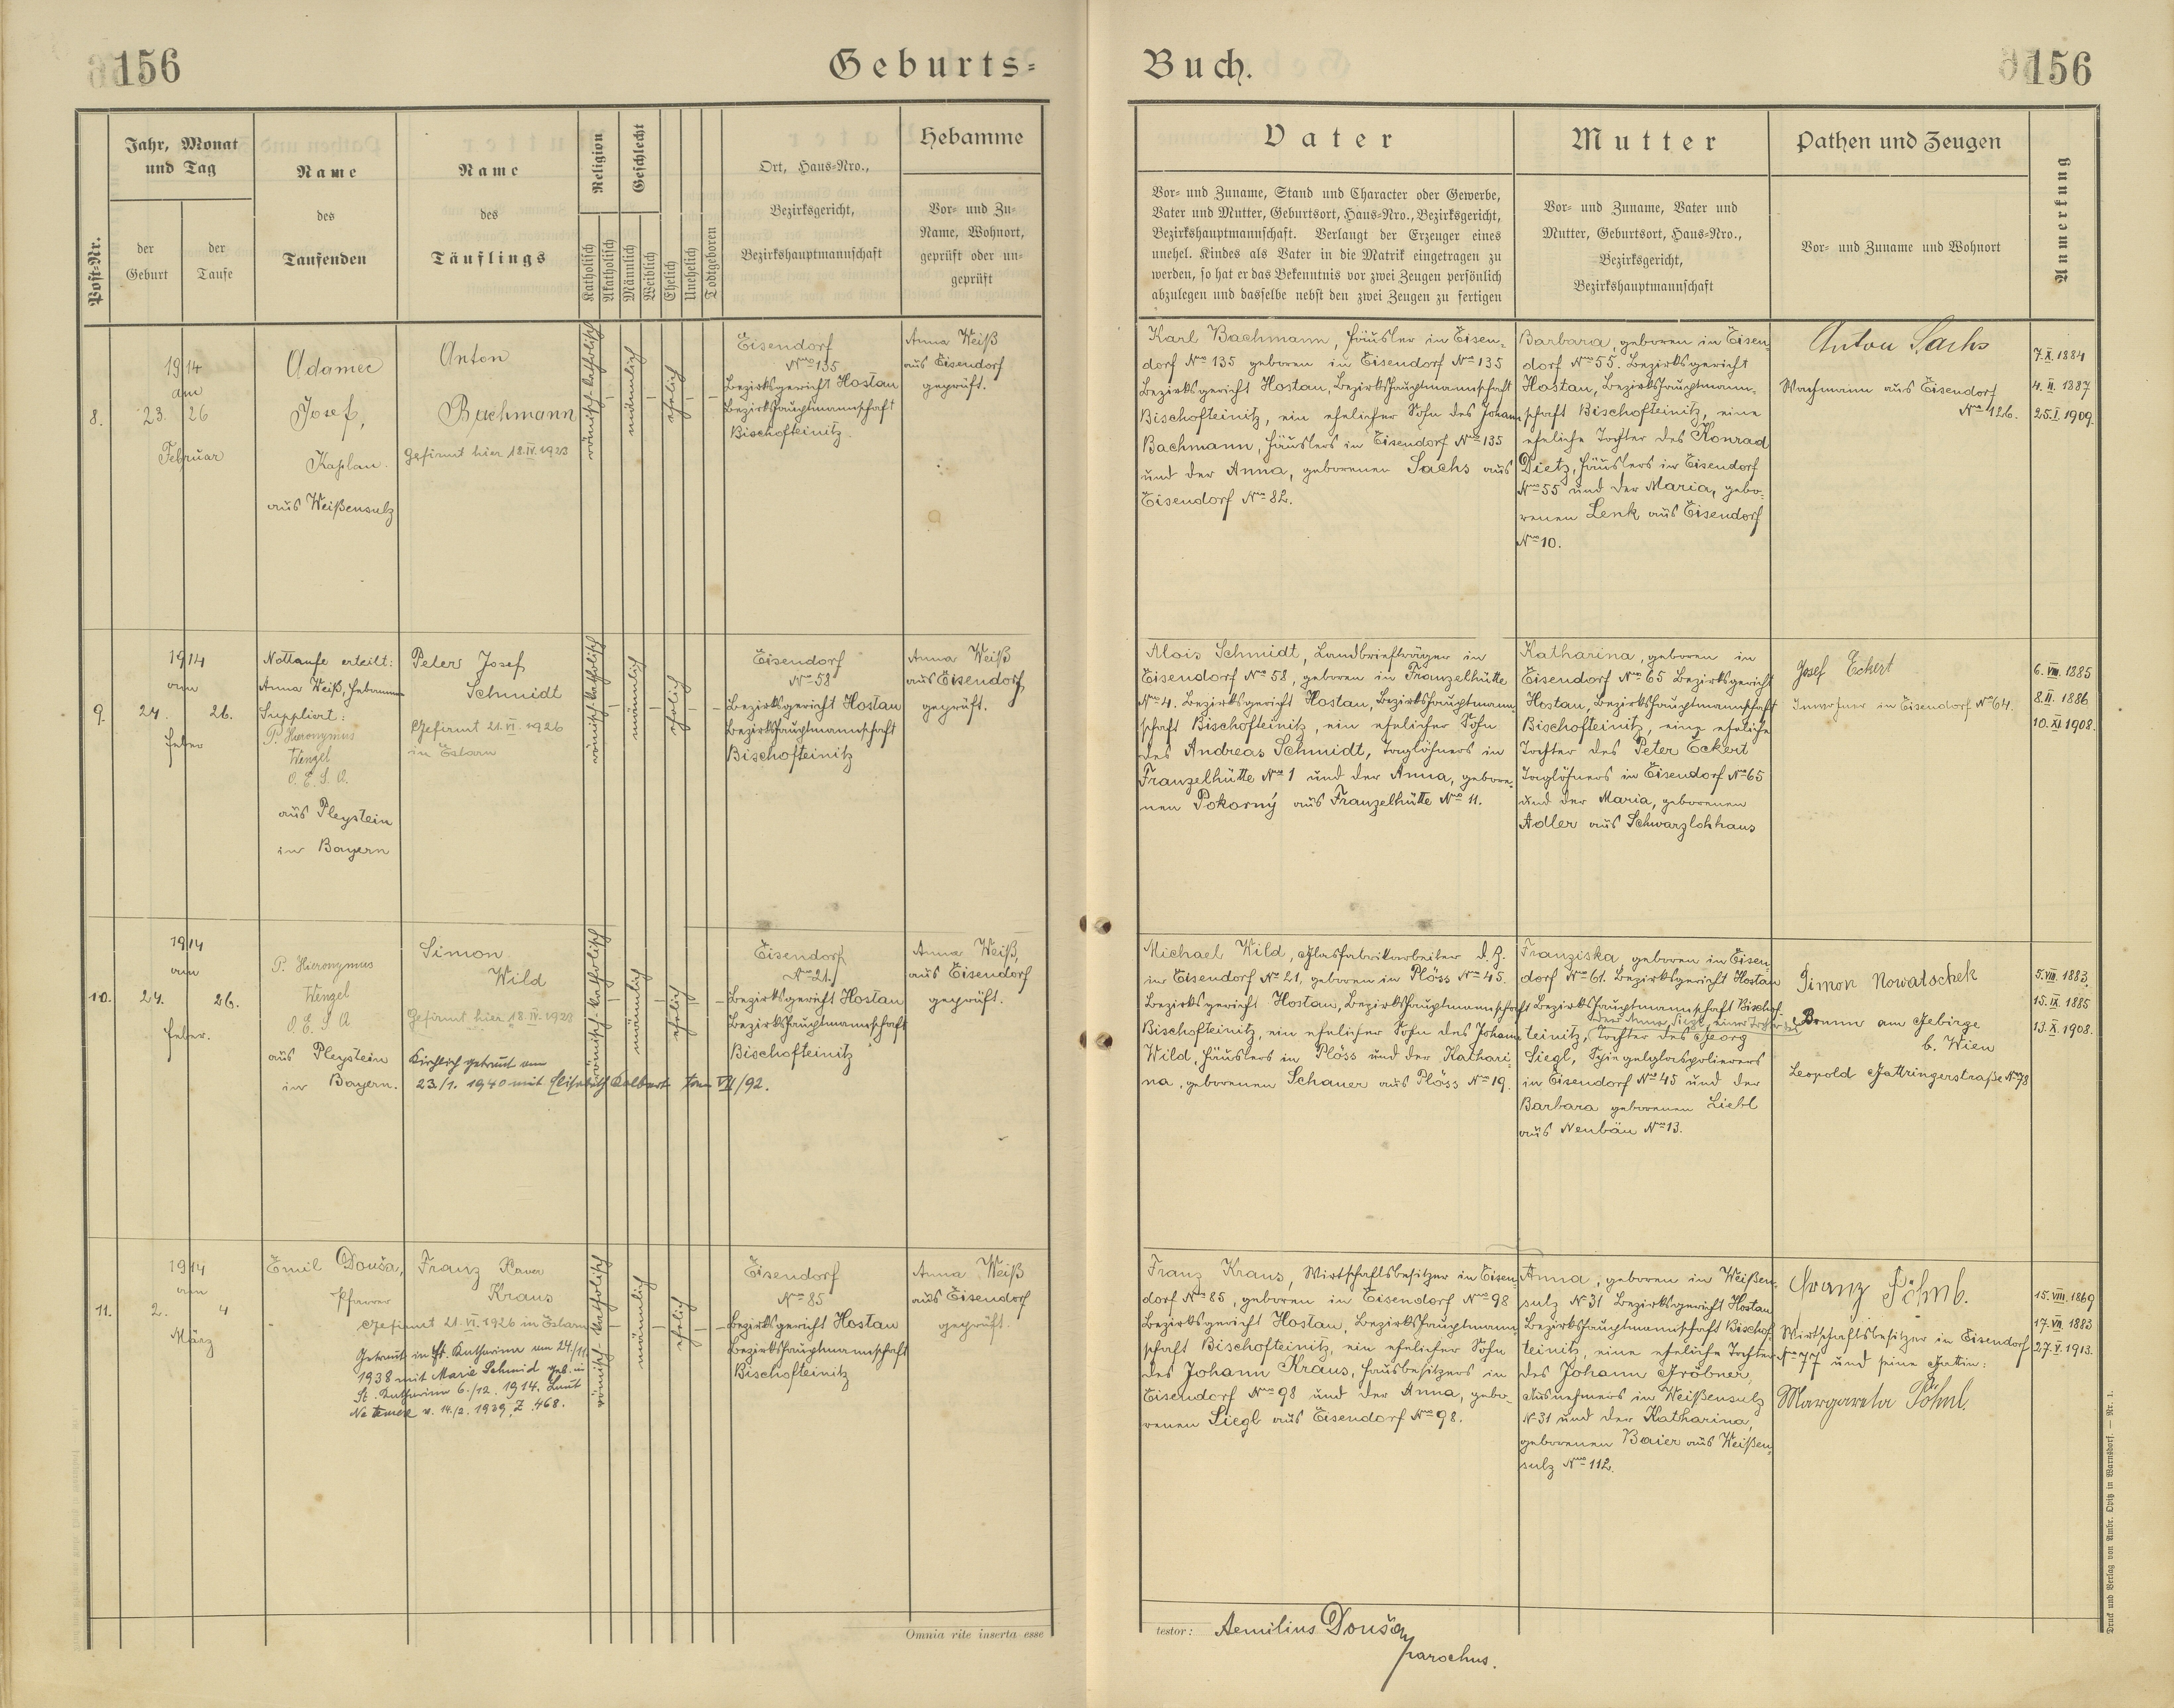 156
Geburts=
Buch.
156
Post-Nr.
Jahr, Monat
und Tag
der
Geburt
der
Taufe
Name
des
Taufenden
Name
des
Täuflings
Religion
Katholisch
Akatholisch
Geschlecht
Männlich
Weiblich
Ehelich
Unehelich
Todtgeboren
Ort, Haus-Nro.,
Bezirksgericht,
Bezirkshauptmannschaft
Hebamme
Vor- und Zu-
Name, Wohnort,
geprüft oder un-
geprüft
Vater
Vor- und Zuname, Stand und Character oder Gewerbe,
Vater und Mutter, Geburtsort, Haus-Nro., Bezirksgericht,
Bezirkshauptmannschaft. Verlangt der Erzeuger eines
unehel. Kindes als Vater in die Matrik eingetragen zu
werden, so hat er das Bekenntnis vor zwei Zeugen persönlich
abzulegen und dasselbe nebst den zwei Zeugen zu fertigen
Mutter
Vor- und Zuname, Vater und
Mutter, Geburtsort, Haus-Nro.,
Bezirksgericht,
Bezirkshauptmannschaft
Pathen und Zeugen
Vor- und Zuname und Wohnort
Anmerkung
8.
1914
am
23. 26
Februar
Adamec
Josef,
Kaplan.
aus Weißensulz
Anton
Bachmann
Gefirmt hier 18.IV.1923
römisch-katholisch
männlich
ehelich
Eisendorf
Nro 135
Bezirksgericht Hostau
Bezirkshauptmannschaft
Bischofteinitz.
Anna Weiß
aus Eisendorf
geprüft.
Karl Bachmann, Häusler in Eisen-
dorf Nro 135 geboren in Eisendorf Nro 135
Bezirksgericht Hostau, Bezirkshauptmannschaft
Bischofteinitz, ein ehelicher Sohn des Johann
Bachmann, Häuslers in Eisendorf Nro 135
und der Anna, geborenen Sachs aus
Eisendorf Nro 82.
Barbara, geboren in Eisen-
dorf Nro 55. Bezirksgericht
Hostau, Bezirkshauptmann-
schaft Bischofteinitz, eine
eheliche Tochter des Konrad
Dietz, Häuslers in Eisendorf
Nro 55 und der Maria, gebo-
renen Lenk aus Eisendorf
Nro 10.
Anton Sachs
Wachmann aus Eisendorf
Nro 126.
7.X.1884
4.II.1887
25.I.1909.
9.
1914
am
24. 26.
Feber
Nottaufe erteilt:
Anna Weiß, Hebamme
Suppliert:
P. Hieronymus
Wenzel
O. E. S. A.
aus Pleystein
in Bayern
Peter Josef
Schmidt
Gefirmt 21.VI.1926
in Eslarn
römisch-katholisch
männlich
ehelich
Eisendorf
Nro 58
Bezirksgericht Hostau
Bezirkshauptmannschaft
Bischofteinitz
Anna Weiß
aus Eisendorf,
geprüft.
Alois Schmidt, Landbriefträger in
Eisendorf Nro 58, geboren in Franzelhütte
Nro 4. Bezirksgericht Hostau, Bezirkshauptmann-
schaft Bischofteinitz, ein ehelicher Sohn
des Andreas Schmidt, Taglöhners in
Franzelhütte Nro 1 und der Anna, gebore-
nen Pokorný aus Franzelhütte Nro 11.
Katharina, geboren in
Eisendorf Nro 65 Bezirksgericht
Hostau, Bezirkshauptmannschaft
Bischofteinitz, eine eheliche
Tochter des Peter Eckert
Taglöhners in Eisendorf Nro 65
und der Maria, geborenen
Adler aus Schwarzlohhaus
Josef Eckert
Inwohner in Eisendorf Nro 64.
6.VIII.1885
8.II.1886
10.XI.1908.
10.
1914
am
24. 26.
Feber.
P. Hieronymus
Wenzel
O. E. S. A
aus Pleystein
in Bayern.
Simon
Wild
Gefirmt hier 18.IV.1923
Kirchlich getraut am
23/1. 1940 mit Elisabeth Kalbert VII/92.
römisch-katholisch
männlich
ehelich
Eisendorf
Nro 21.
Bezirksgericht Hostau
Bezirkshauptmannschaft
Bischofteinitz
Anna Weiß,
aus Eisendorf
geprüft.
Michael Wild, Glasfabrikarbeiter d. Z.
in Eisendorf Nro 21, geboren in Plöss Nro 45.
Bezirksgericht Hostau, Bezirkshauptmannschaft
Bischofteinitz, ein ehelicher Sohn des Johann
Wild, Häuslers in Plöss und der Kathari-
na, geborenen Schauer aus Plöss Nro 19.
Franziska geboren in Eisen-
dorf Nro 61. Bezirksgericht Hostau
Bezirkshauptmannschaft Bischof-
der Anna Siegl, einer Tochter des
teinitz, Tochter des Georg
Siegl, Spiegelglaspolierers
in Eisendorf Nro 45 und der
Barbara geborenen Liebl
aus Neubäu Nro 13.
Simon Nowatschek
Brunn am Gebirge
b. Wien
Leopold Gattringerstraße Nro 78
5.VIII.1883.
15.IX.1885
13.X.1908.
11.
1914
am
2. 4
März
Emil Douša,
Pfarrer
Franz Xaver
Kraus
Gefirmt 21.VI.1926 in Eslarn
Getraut in St. Katharina am 24/11.
1938 mit Marie Schmid geb. in
St. Katharina 6./12. 1914. Laut
Ne temere v. 14./2. 1939, Z. 468.
römisch-katholisch
männlich
ehelich
Eisendorf
Nro 85
Bezirksgericht Hostau
Bezirkshauptmannschaft
Bischofteinitz
Anna Weiß
aus Eisendorf
geprüft.
Franz Kraus, Wirtschaftsbesitzer in Eisen-
dorf Nro 85, geboren in Eisendorf Nro 98
Bezirksgericht Hostau, Bezirkshauptmann-
schaft Bischofteinitz, ein ehelicher Sohn
des Johann Kraus, Hausbesitzers in
Eisendorf Nro 98 und der Anna, gebo-
renen Siegl aus Eisendorf Nro 98.
Anna, geboren in Weißen-
sulz N 31 Bezirksgericht Hostau
Bezirkshauptmannschaft Bischof-
teinitz, eine eheliche Tochter
des Johann Gröbner,
Ausnehmers in Weißensulz
N 31 und der Katharina,
geborenen Baier aus Weißen-
sulz Nro 112.
Franz Pöhnl.
Wirtschaftsbesitzer in Eisendorf
Nro 77 und seine Gattin:
Margareta Pöhnl.
15.VIII.1869
17.VII.1883
27.V.1913.
Omnia rite inserta esse
testor: Aemilius Douša,
parochus.
Druck und Verlag von Ambr. Opitz in Warnsdorf. — Nr. 1.